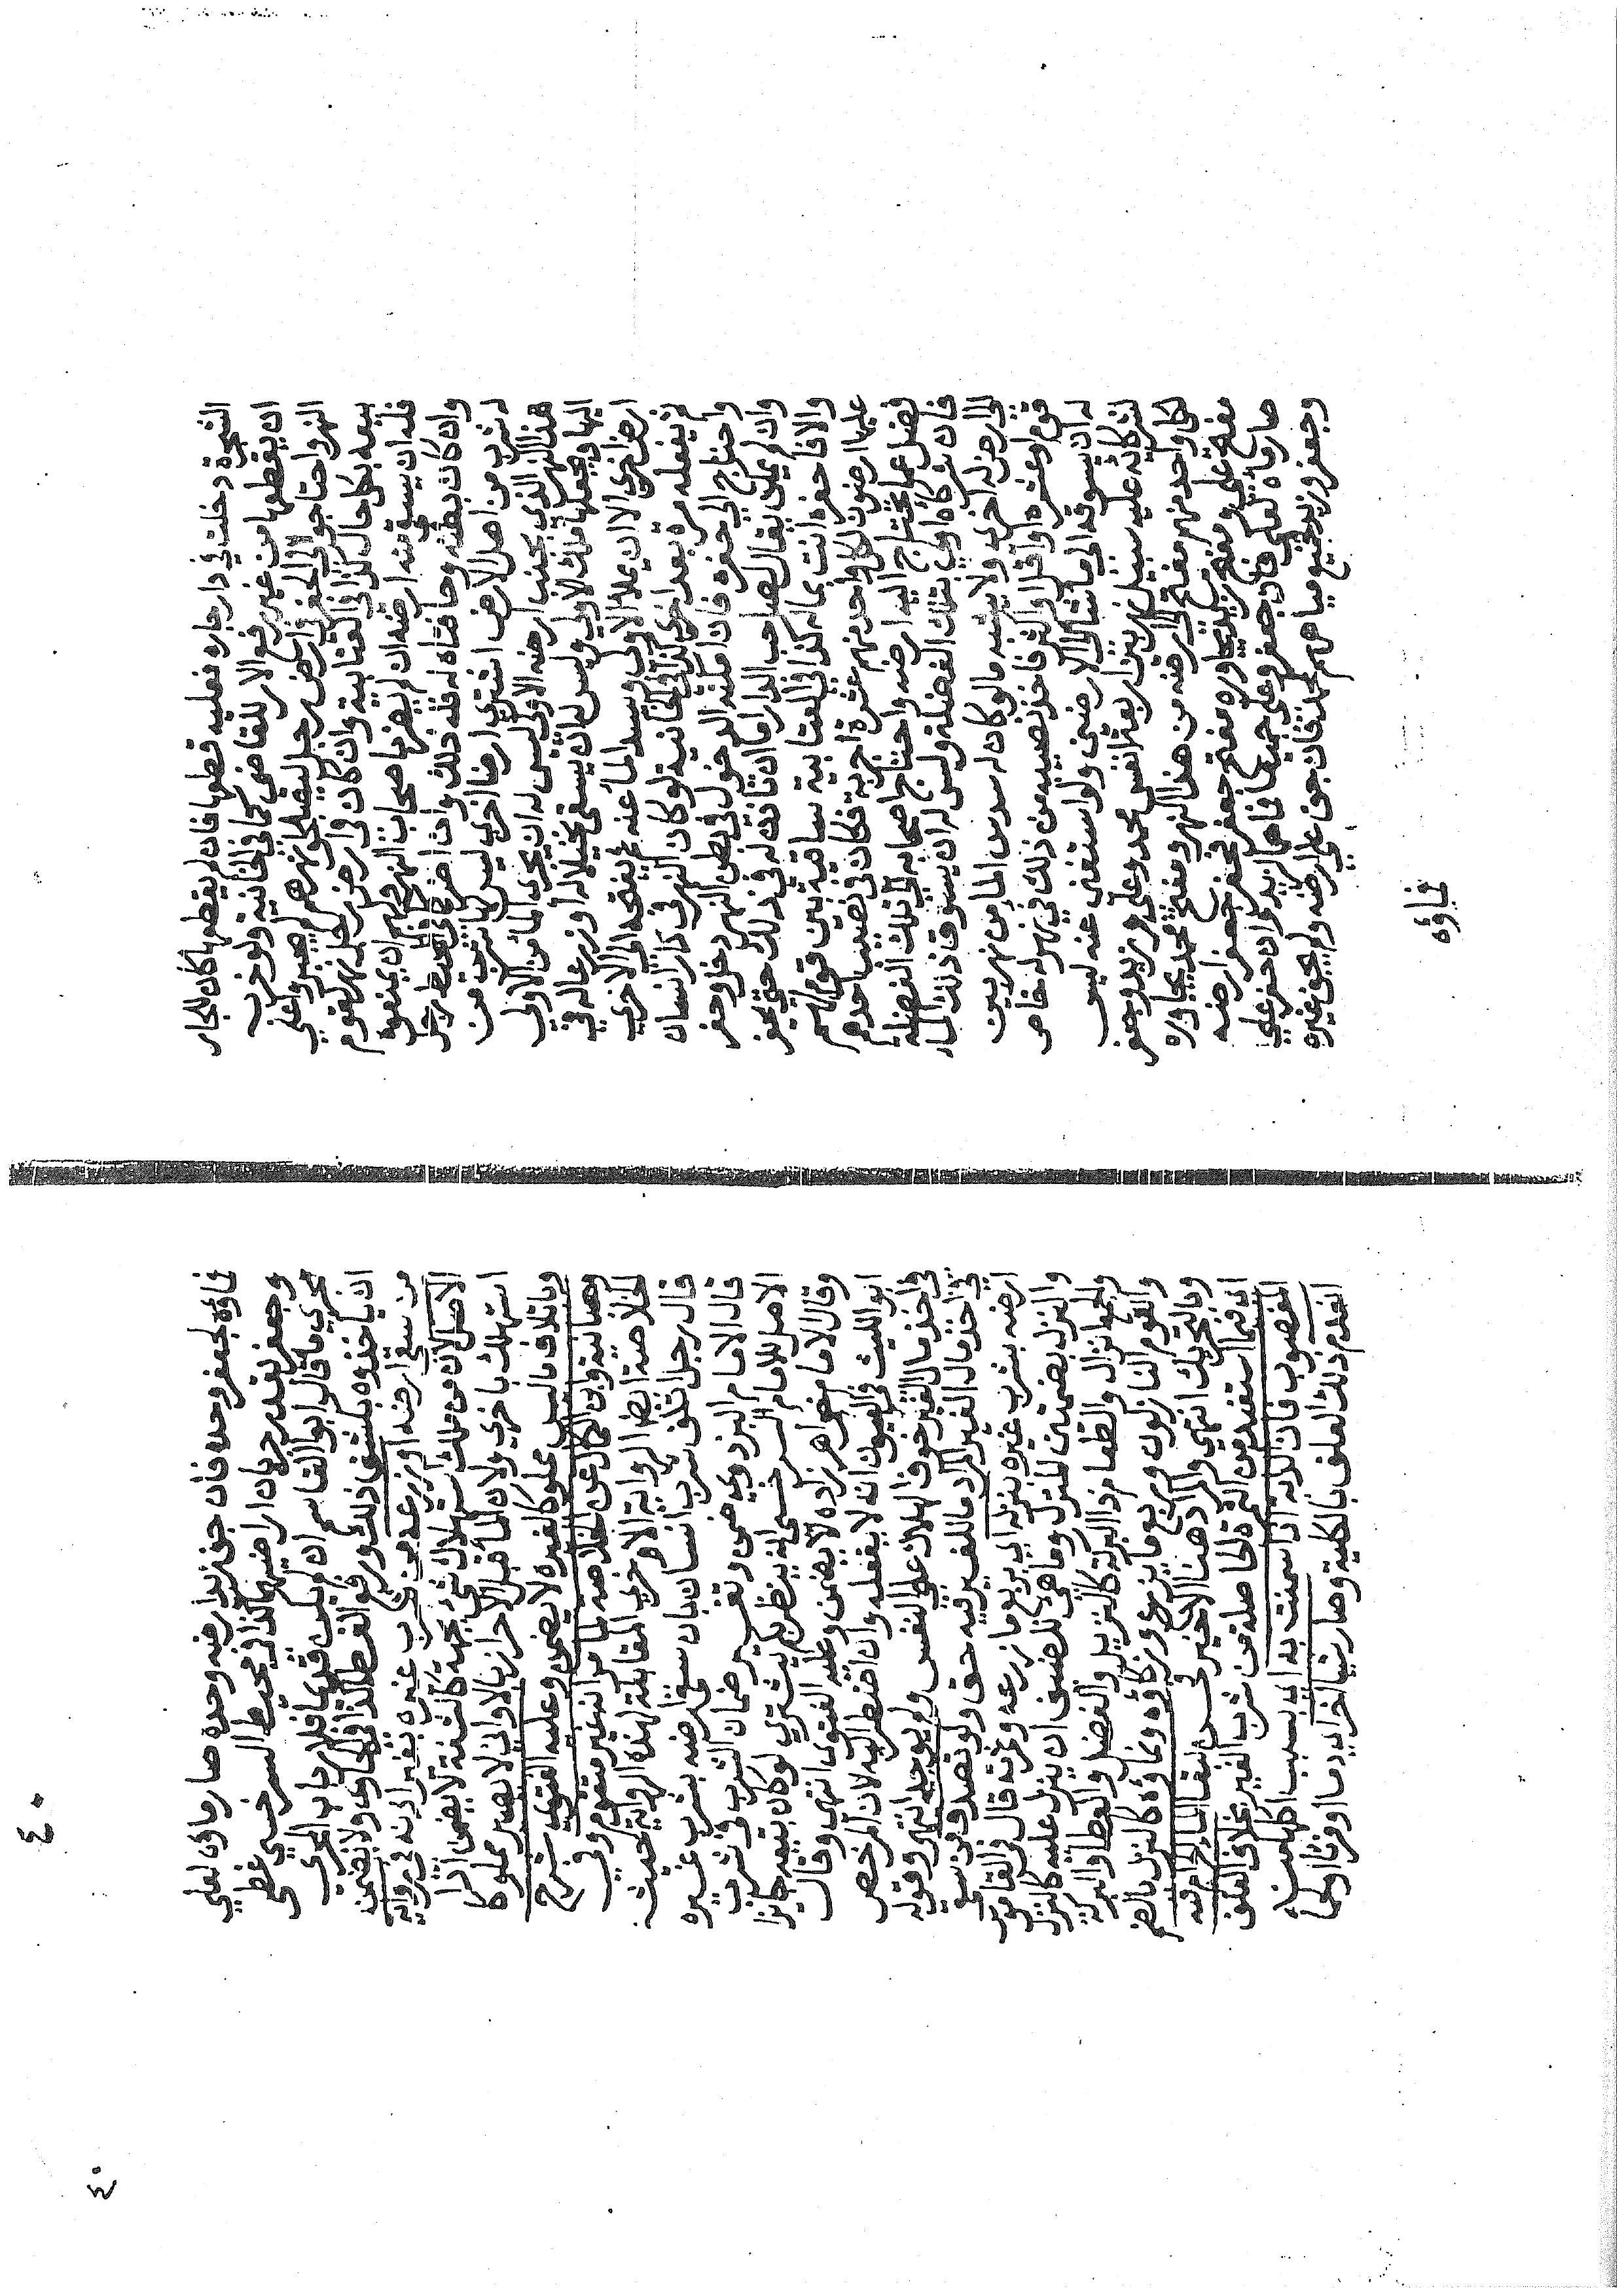 الشجرة دخلت في دار جاره فعليه قطعها فان لم يقطعها كان للجار
ان يقطعها من غير رفع الامر للقاضي كما في الخانية ولو خرب
النهر واحتاجوا الى الحفر في ارض رجل ليصلحوا نهرهم لم يجبروا على
بيعه بكل حال كذا في العتابية وان كان في ارض رجل نهر لقوم
فله ان يسقي منه ارضه ان لم يضر باصحاب النهر ولهم ان يمنعوه
وان كان بطنه وحافتاه له فله ذلك وان اضر
له شرب من اصل الارض اشترى ارضا اخرى ليس لها شرب من
هذا النهر الذي بجنب ارضه الاولى ليس له ان يجري الماء من الاولى
اليها ويجعلها مكان الاولى وليس له ان يسقي نخيلا له او زرعا له في
ارض اخرى الا ان يملأ الاولى ويسد الماء عنه ثم يفتحه الى الاخرى
ثم يفعله مرة بعد اخرى كذا في الخانية لو كان النهر في دار انسان
واحتاج الى حفره فان امكنه الدخول في بطن النهر دخل وحفر
وان لم يمكن يقال لصاحب الدار اما ان تاذن له في ذلك حتى يحفر
والا فاحفره انت بماله كذا في العتابية ساقية بين قوم لهم
عليها ارضون لكل واحد منهم عشرة اجربة فكان في نصيب احدهم
فضل عما يحتاج اليه ارضه واحتاج اصحابه الى تلك الفضلة
فان شركاءه اولى بتلك الفضلة وليس له ان يسوق ذلك الماء
الى ارض له اخرى ولا يشبه ما لو كان له سدس الماء من نهر بين
قوم او عشره او اقل او اكثر فاخذ نصيبه من ذلك في نهر له خاص
له ان يسوقه الى ما شاء من الارضين ولو استغنى عنه ليس
لشركائه عليه سبيل نهر بين اربعة انفس محمد وعلي وزيد وجعفر
لكل واحد منهم مفتح الى ارضه من هذا النهر ومفتح محمد يجاوره
مفتح علي ومفتح زيد يجاوره مفتح جعفر فحفر جعفر ارضه
صار ماؤه لعلي فان جعفر وعلي جميعا فماؤهما لزيد وان حفر علي
وجعفر وزيد جميع مياههم لمحمد فان جف على ارضه ولم يجف غيره
فماؤه
فماؤه لجعفر وحده فان جف زيد ارضه وحده صار ماؤه لعلي
وجعفر بقدر جريان اراضيهما كذا في محيط السرخسي غطى
مجرى ماء قال ابو القاسم ان لم يكن قديما فلارباب المجرى
ان ياخذوه بكشف ذلك ورفع الغطاء كذا في الحاوي ولا يضمن
من سقى ارضه او زرعه من شرب غيره بغير اذنه في رواية
الاصل لانه من ملك استهلاك شيء بجهة كالشفة لا يضمن اذا
استهلك باخرى ولان الماء قبل الاحراز بالاواني لا يصير مملوكا
وباتلاف ما ليس مملوكا لغيره لا يضمن وعليه الفتوى شرح
وهبانية وابن الكمال عن الخلاصة لان الماء غير متقوم وفي
الخلاصة ايضا الرواية الاخرى المقابلة لهذه الرواية حيث
قال رجل اتلف شرب انسان بان سقى ارضه بشرب غيره
قال الامام البزدوي ضمن وتفسير ضمان الشرب في شرب
الاصل للامام السرخسي انه ينظر بكم يشترى لو كان بيعه جائزا
وقال الامام خواهر زاده لا يضمن وعليه الفتوى انتهى وقال
ابو الليث في العيون انه لا يفعله وان اضطر اليه لان المرخص
في اخذ مال الغير خوف الهلاك على النفس ولم يوجد انتهى وقوله
في اخذ مال الغير المراد ما للغير فيه حق ولو تصدق من سقى
ارضه بشرب غيره بنزله اي بريع ما زرعه وثمرته قال في القاموس
والنزل بضمتين المنزل وما هيئ للضيف ان ينزل عليه كالنزل
والجمع انزال والطعام ذا البركة كالنزيل والفضل والعطاء والبركة
والقوم النازلون وريع ما يزرع وزكاؤه ونماؤه كالنزل بالضم
وبالتحريك انتهى والمراد هنا الاخير فحسن لبقاء الماء الحرام فيه
اي فيما استفيد من الثمرة الحاصلة من شرب الغير بخلاف العلف
المغصوب فان الدابة اذا سمنت به اي بسبب اكلها منه
انعدم ذلك العلف بالكلية وصار شيئا اخر اي دما او فرثا او لحما
٤٠
٤٠